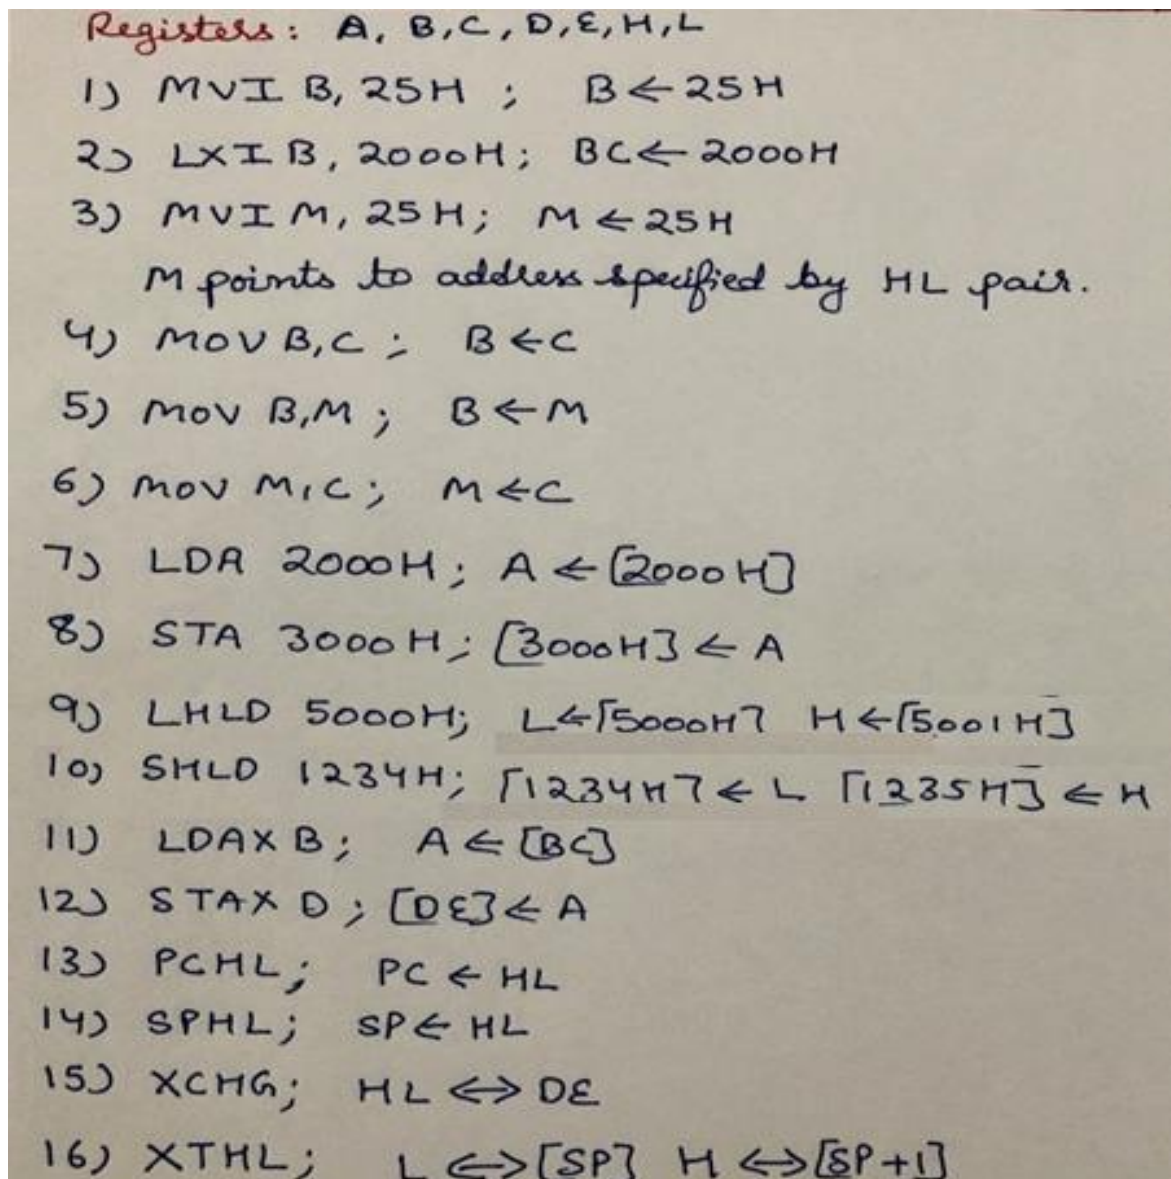 Registers: A, B, C, D, E, H, L
1) MVI B, 25H ; B ← 25H
2) LXI B, 2000H; BC ← 2000H
3) MVI M, 25H; M ← 25H
M points to address specified by HL pair.
4) MOV B,C ; B ← C
5) MOV B,M ; B ← M
6) MOV M,C ; M ← C
7) LDA 2000H; A ← [2000H]
8) STA 3000H; [3000H] ← A
9) LHLD 5000H; L ← [5000H] H ← [5001H]
10) SHLD 1234H; [1234H] ← L [1235H] ← H
11) LDAX B; A ← [BC]
12) STAX D; [DE] ← A
13) PCHL; PC ← HL
14) SPHL; SP ← HL
15) XCHG; HL ⇔ DE
16) XTHL; L ⇔ [SP] H ⇔ [SP+1]